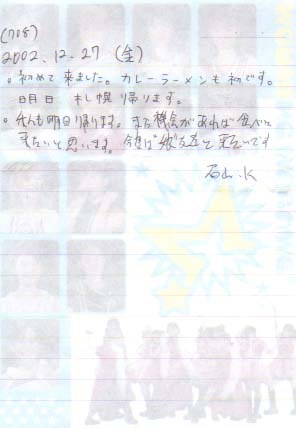 (708)
2002.12.27 (金)
。初めて来ました。カレーラーメンも初です。
明日 札幌帰ります。
。私も明日帰ります。また機会があれば食べに
来たいと思います。今度は彼友達と来たいです
石山.K